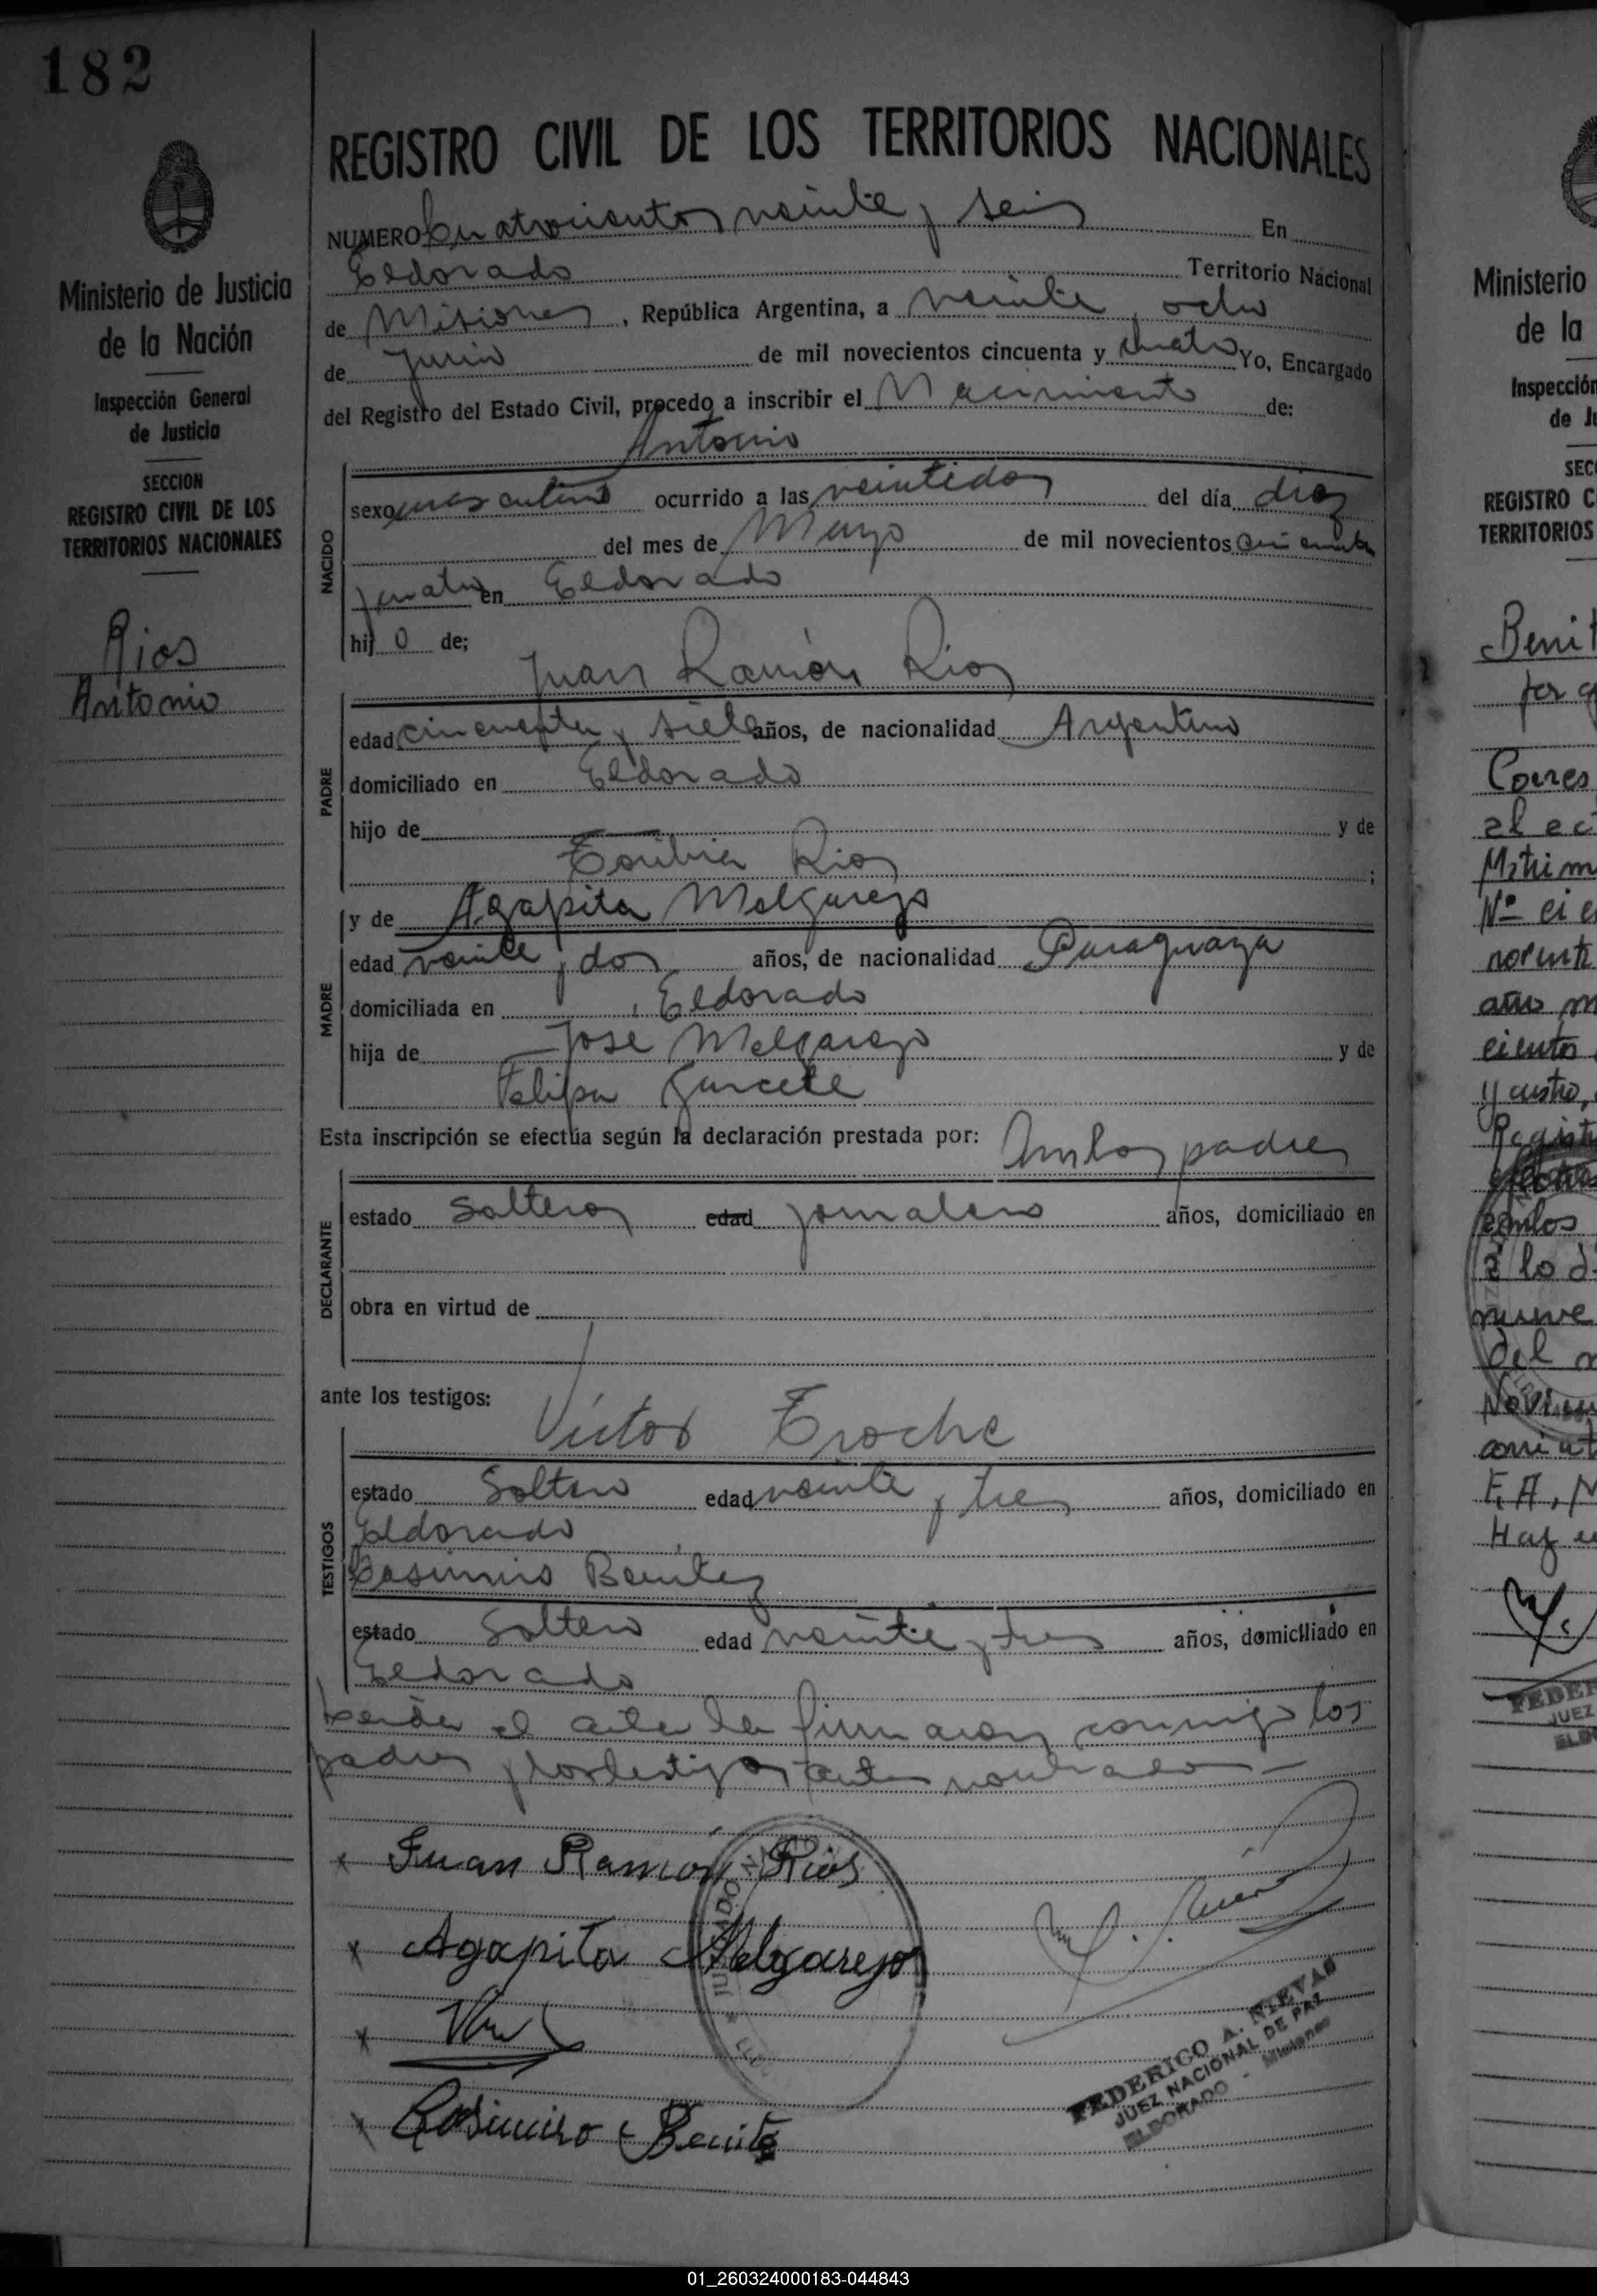 182
REGISTRO CIVIL DE LOS TERRITORIOS NACIONALES
NUMERO Cuatrocientos veinte y seis En
Eldorado Territorio Nacional
de Misiones, República Argentina, a veinte y ocho
de Junio de mil novecientos cincuenta y cuatro Yo, Encargado
del Registro del Estado Civil, procedo a inscribir el Nacimiento de:
Antonio
NACIDO
sexo masculino ocurrido a las veintidos del día diez
del mes de Mayo de mil novecientos cincuenta
y cuatro en Eldorado
hijo de;
Juan Ramón Rios
PADRE
edad cincuenta y siete años, de nacionalidad Argentino
domiciliado en Eldorado
hijo de y de
Toribia Rios ;
y de Agapita Melgarejo
MADRE
edad veinte y dos años, de nacionalidad Paraguaya
domiciliada en Eldorado
hija de José Melgarejo y de
Felipa Garcete
Esta inscripción se efectúa según la declaración prestada por: Ambos padres
DECLARANTE
estado Solteros edad jornalero años, domiciliado en
obra en virtud de
ante los testigos:
Victor Troche
TESTIGOS
estado Soltero edad veinte y tres años, domiciliado en
Eldorado
Casimiro Benitez
estado Soltero edad veinte y tres años, domiciliado en
Eldorado
el acta la firmaron conmigo los
padres y los testigos antes nombrados
x Juan Ramón Rios
x Agapita Melgarejo
x
x Casimiro Benitez
JUZGADO
FEDERICO A. NIEVAS
JUEZ NACIONAL DE PAZ
ELDORADO - Misiones
Ministerio de Justicia
de la Nación
Inspección General
de Justicia
SECCION
REGISTRO CIVIL DE LOS
TERRITORIOS NACIONALES
Rios
Antonio
Ministerio
de la
Inspección
de Ju
SEC
REGISTRO C
TERRITORIOS
Benit
por
Corres
al ac
Matrim
Nº
año m
cientos
y cuatro,
Regist
a lo d
nueve
del
F. A. N
FEDER
JUEZ
01_260324000183-044843